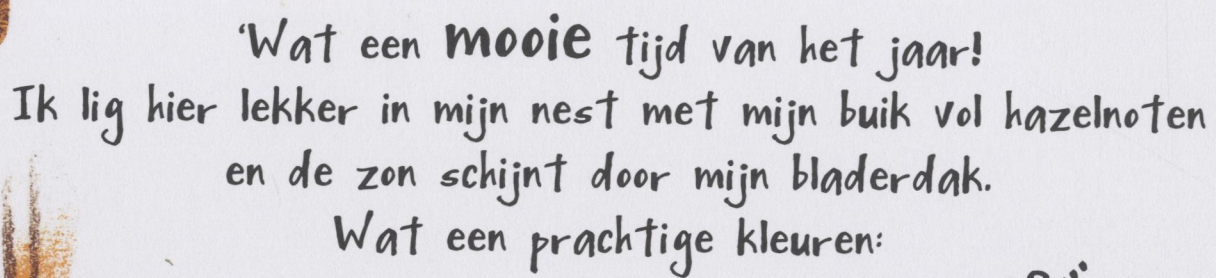 ‘Wat een mooie tijd van het jaar!
Ik lig hier lekker in mijn nest met mijn buik vol hazelnoten
en de zon schijnt door mijn bladerdak.
Wat een prachtige kleuren: